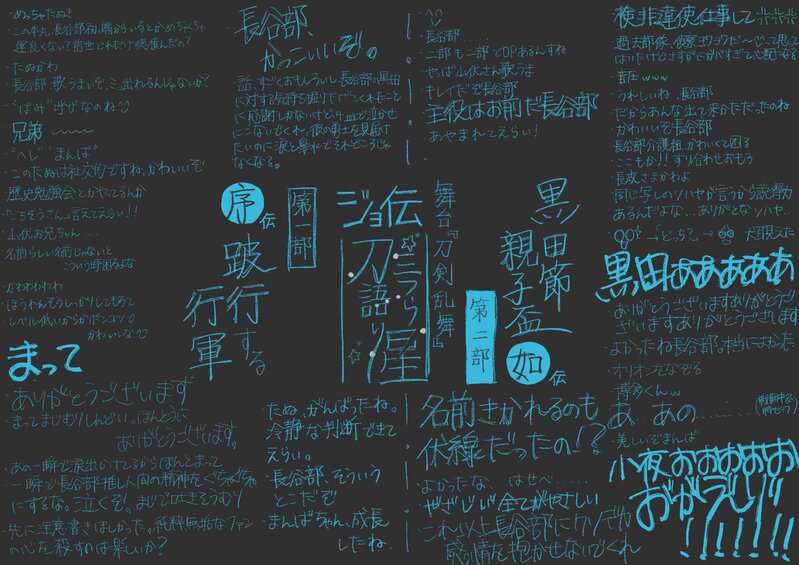 ・めっちゃたぬき
・この本丸、長谷部初っ端からいるとかめちゃくちゃ
運良くない?前世どれだけ徳積んだの?
・たぬかわ
・長谷部、歌うまいぞ。ミュ出れるんじゃないか?
・"ばみ"呼びなのね
・兄弟
・"ヘし" "まんば"
・このたぬは社交的ですね。かわいいぞ
・歴史勉強会とかやってるんか
・"ごちそうさん"言えてえらい!!
・山伏お兄ちゃん....
・名前らしい名前じゃないと
こういう時困るよな
・かわわわわわ
・ほうれんそうしっかりしてもろて
・レベル低いからかポンコツで
かわいいな
・まって
・ありがとうございます
・まってまじむりしんどい。ほんとうに
ありがとうございます。
・あの一瞬で涙出かけてるからほんとまって
・一瞬で長谷部推し人間の精神をぐちゃぐちゃ
にするな。泣くぞ。まじで吐きそうむり
・先に注意書きほしかった。純粋無垢なファン
の心を殺すのは楽しいか?
長谷部、
かっこいいぞ。
話、すごくおもしろいし、長谷部の黒田
に対する気持ち掘り下げてくれたこと
に感謝しかないけど、
にこないでくれ。彼の勇士を見届け
たいのに涙と鼻水でそれどころじゃ
なくなる。
長谷部....
・二部も二部でOPあるんすね
・やっぱ山伏さん歌うま
・キレイだぞ長谷部
・主役はお前だ長谷部
・あやまれてえらい!
・検非違使仕事して
・過去部隊、偵察ヨワヨワだ〜って思って
はいたけどさすがにガバすぎて心配になる
・圧www
・うれしいね、長谷部
・だからあんな出て来かただったのね
・かわいいぞ長谷部
・長谷部介護組、かわいくて困る
・ここもか!!すり合わせおもろ
・長成さまかわよ
・同じ写しのソハヤが言うから説得力
あるんだよな...ありがとなソハヤ...
→「どっち?」→
犬耳みえた
・黒田ああああああ
・ありがとうございますありがとうご
ざいますありがとうございます
・よかったね長谷部。本当によかった
・オリオン左なぞる
・博多くんw
・あ、あの......
・美しいぞまんば
・小夜おおおおお
おかえり!!
!!!!!!
舞台『刀剣乱舞』
ジョ伝
三つら星
刀語り
第一部
序伝
跛行する
行軍
第二部
如伝
黒田節
親子盃
・たぬ、がんばったね。
冷静な判断できて
えらい。
・長谷部、そういう
とこだぞ
・まんばちゃん、成長
したね。
・名前きかれるのも
伏線だったの!?
・よかったな...はせべ.....
・やざじい全てがやさしい
・これ以上長谷部にクソデカ
感情を抱かせないでくれ